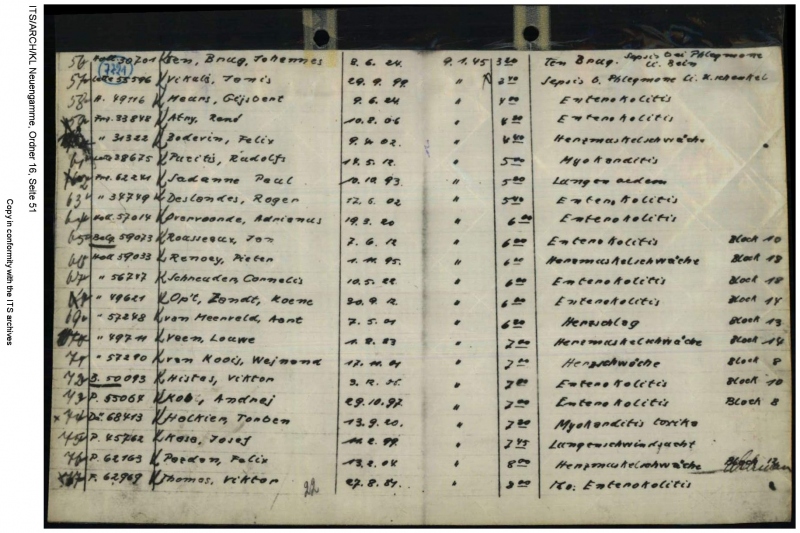 ITS/ARCH/KL Neuengamme, Ordner 16, Seite 51
Copy in conformity with the ITS archives
56 30701 Ten, Brug, Johannes 8. 6. 24. 9. 1. 45 Ten Brug. Sepsis bei Phlegmone li. Bein
(7221)
57 Vikals, Janis 29. 9. 99. " Sepsis b. Phlegmone li.
58 H. 49116 Mears, Gijsbert 9. 6. 24 " 4 00 Enterokolitis
Frs. 33848 Atry, René 10. 8. 06 " 4 00 Enterokolitis
" 31322 Boderin, Felix 9. 4. 02. " 4 40 Herzmuskelschwäche
61 28675 Puritis, Rudolfs 14. 5. 12. " 5 00 Myokarditis
Frs. 62241 Sadanne Paul 10. 10. 93. " 5 00 Lungenoedem
63 " 34749 Deslandes, Roger 17. 6. 02 " 5 40 Enterokolitis
64 Hol. 57014 Adrianus 19. 3. 20 " 6 00 Enterokolitis
65 Belg 59073 Rousseaux, Jan 7. 6. 12 " 6 00 Enterokolitis Block 10
66 Hol 59033 Renoey, Pieter 1. 11. 95. " 6 00 Herzmuskelschwäche Block 18
67 " 56747 Schreuder, Cornelis 10. 5. 22 " 6 00 Enterokolitis Block 18
" 49621 Op't, Zandt, Koene 20. 9. 12 " 6 00 Enterokolitis Block 14
69 " 57248 van Meerveld, Aart 7. 5. 01 " 6 00 Herzschlag Block 13
" 49711 Veen, Louwe 1. 8. 23 " 7 00 Herzmuskelschwäche Block 14
71 " 57290 van Kooij, Wejnand 17. 11. 01 " 7 00 Herzschwäche Block 8
72 B. 50093 Histas, Viktor 3. 12. " 7 00 Enterokolitis Block 10
73 P. 55064 Kob, Andrej 29. 10. 97. " 7 00 Enterokolitis Block 8
x 74 Dä. 68413 Halkier, Torben 13. 9. 20. " 7 00 Myokarditis toxika
75 P. 45762 Kosa, Josef 2. 99. " 7 45 Lungenschwindsucht
76 P. 62163 Pordon, Felix 13. 2. 04 " 8 00 Herzmuskelschwäche Block 12
P. 62969 Thomas, Viktor 27. 8. " 8 00 Enterokolitis
22